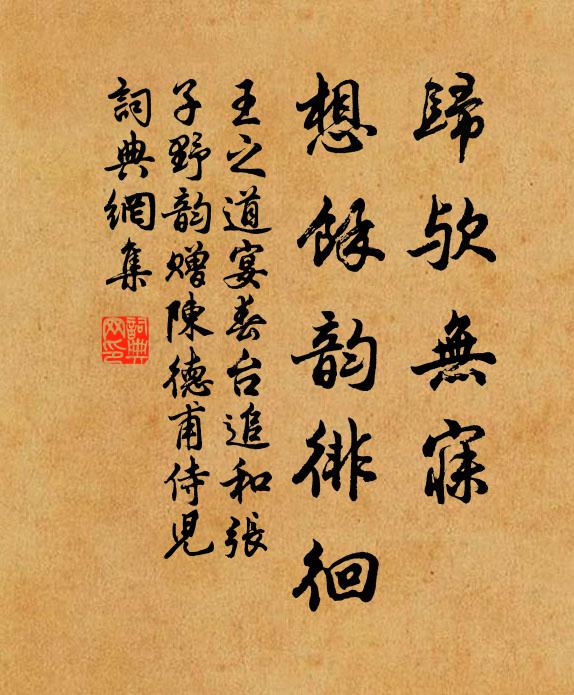 歸欤無寐
想餘韵徘徊
王之道宴春台追和張
子野韵贈陳德甫侍兒
詞典網集
詞典网印